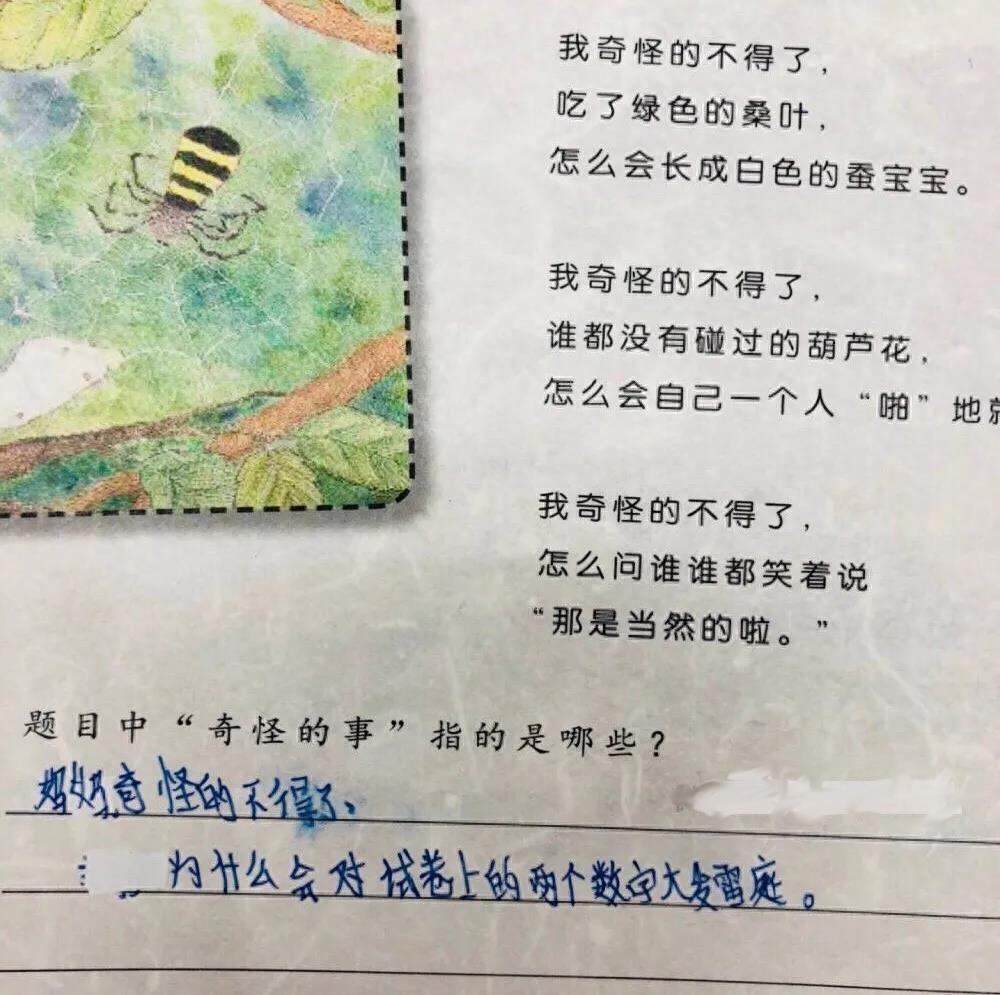 我奇怪的不得了，
吃了绿色的桑叶，
怎么会长成白色的蚕宝宝。
我奇怪的不得了，
谁都没有碰过的葫芦花，
怎么会自己一个人“啪”地就
我奇怪的不得了，
怎么问谁谁都笑着说
“那是当然的啦。”
题目中“奇怪的事”指的是哪些？
妈妈奇怪的不得了、
为什么会对试卷上的两个数字大发雷庭。